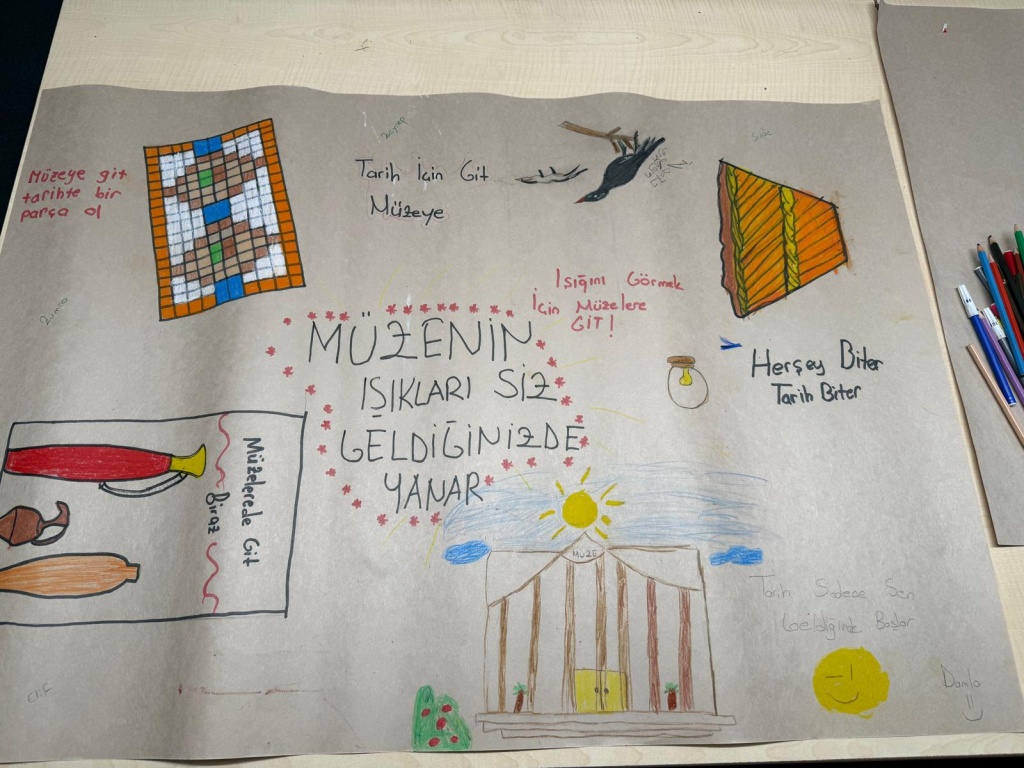 Müzeye git
tarihte bir
parça ol
Zeynep
Tarih İçin Git
Müzeye
Işığını Görmek
İçin Müzelere
GİT!
MÜZENİN
IŞIKLARI SİZ
GELDİĞİNİZDE
YANAR
Herşey Biter
Tarih Biter
Müzelerede Git
Biraz
MÜZE
Tarih Sadece Sen
Geldiğinde Başlar
Elif
Damla